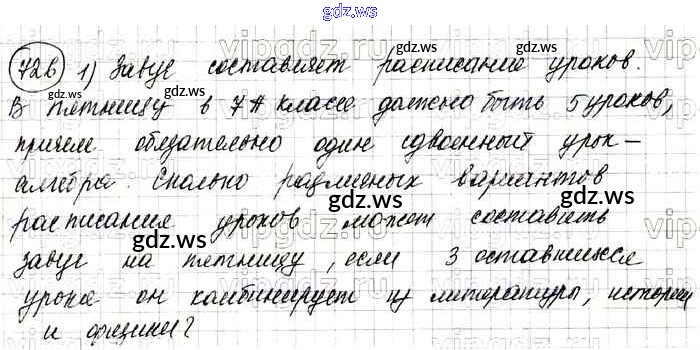 gdz.ws
726 1) Завуч составляет расписание уроков.
В пятницу в 7 А классе должно быть 5 уроков,
причем обязательно один сдвоенный урок —
алгебра. Сколько различных вариантов
расписания уроков может составить
завуч на пятницу, если 3 оставшихся
урока он комбинирует из литературы, истории
и физики?